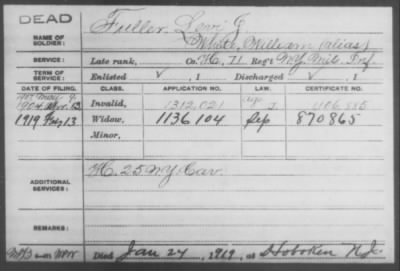 DEAD
NAME OF SOLDIER: Fuller, Levi J
White, William (alias)
SERVICE: Late rank, Co. H, 71 Reg't N.Y. Mil. Inf.
TERM OF SERVICE: Enlisted ✓, 1 Discharged ✓, 1
DATE OF FILING. CLASS. APPLICATION NO. LAW. CERTIFICATE NO.
1904 Nov. 12 Invalid, 1312,021
1919 13 Widow, 1136 104 Sep 870865
Minor,
ADDITIONAL SERVICES: H. 25 N.Y. Cav.
REMARKS:
Died Jan 24, 1919, at Hoboken N.J.